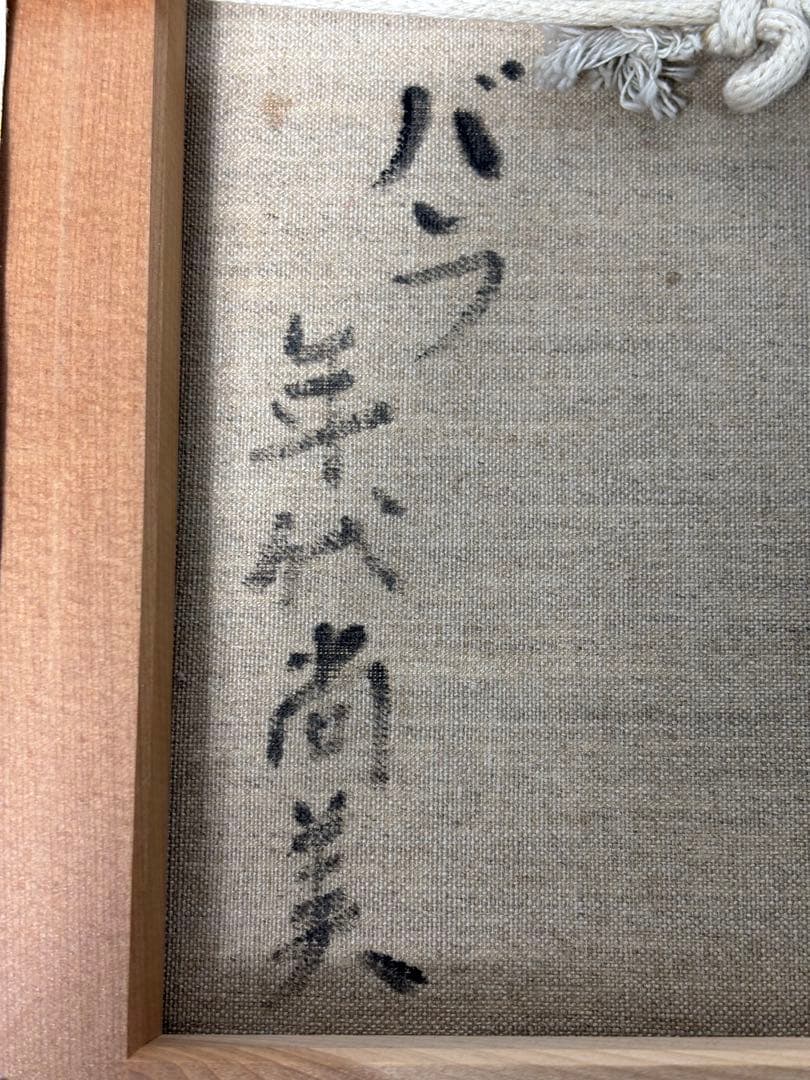 バラ
年代尚美